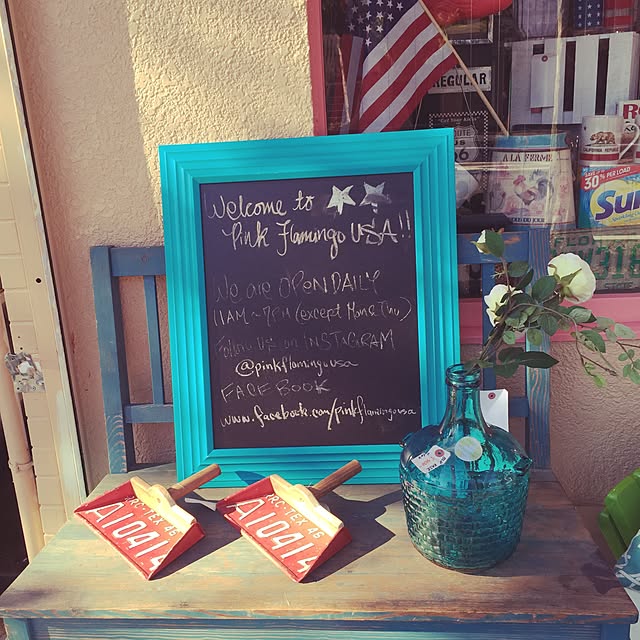 Welcome to
Pink Flamingo USA!!
We are OPEN DAILY
11AM ~ 7PM (except Mon & Thu)
Follow us on INSTAGRAM
@pinkflamingousa
FACEBOOK
www.facebook.com/pinkflamingousa
REGULAR
A LA FERME
CALIFORNIA REPUBLIC
30% PER LOAD
Su
TEX 46
A10414
TEX 46
A10414